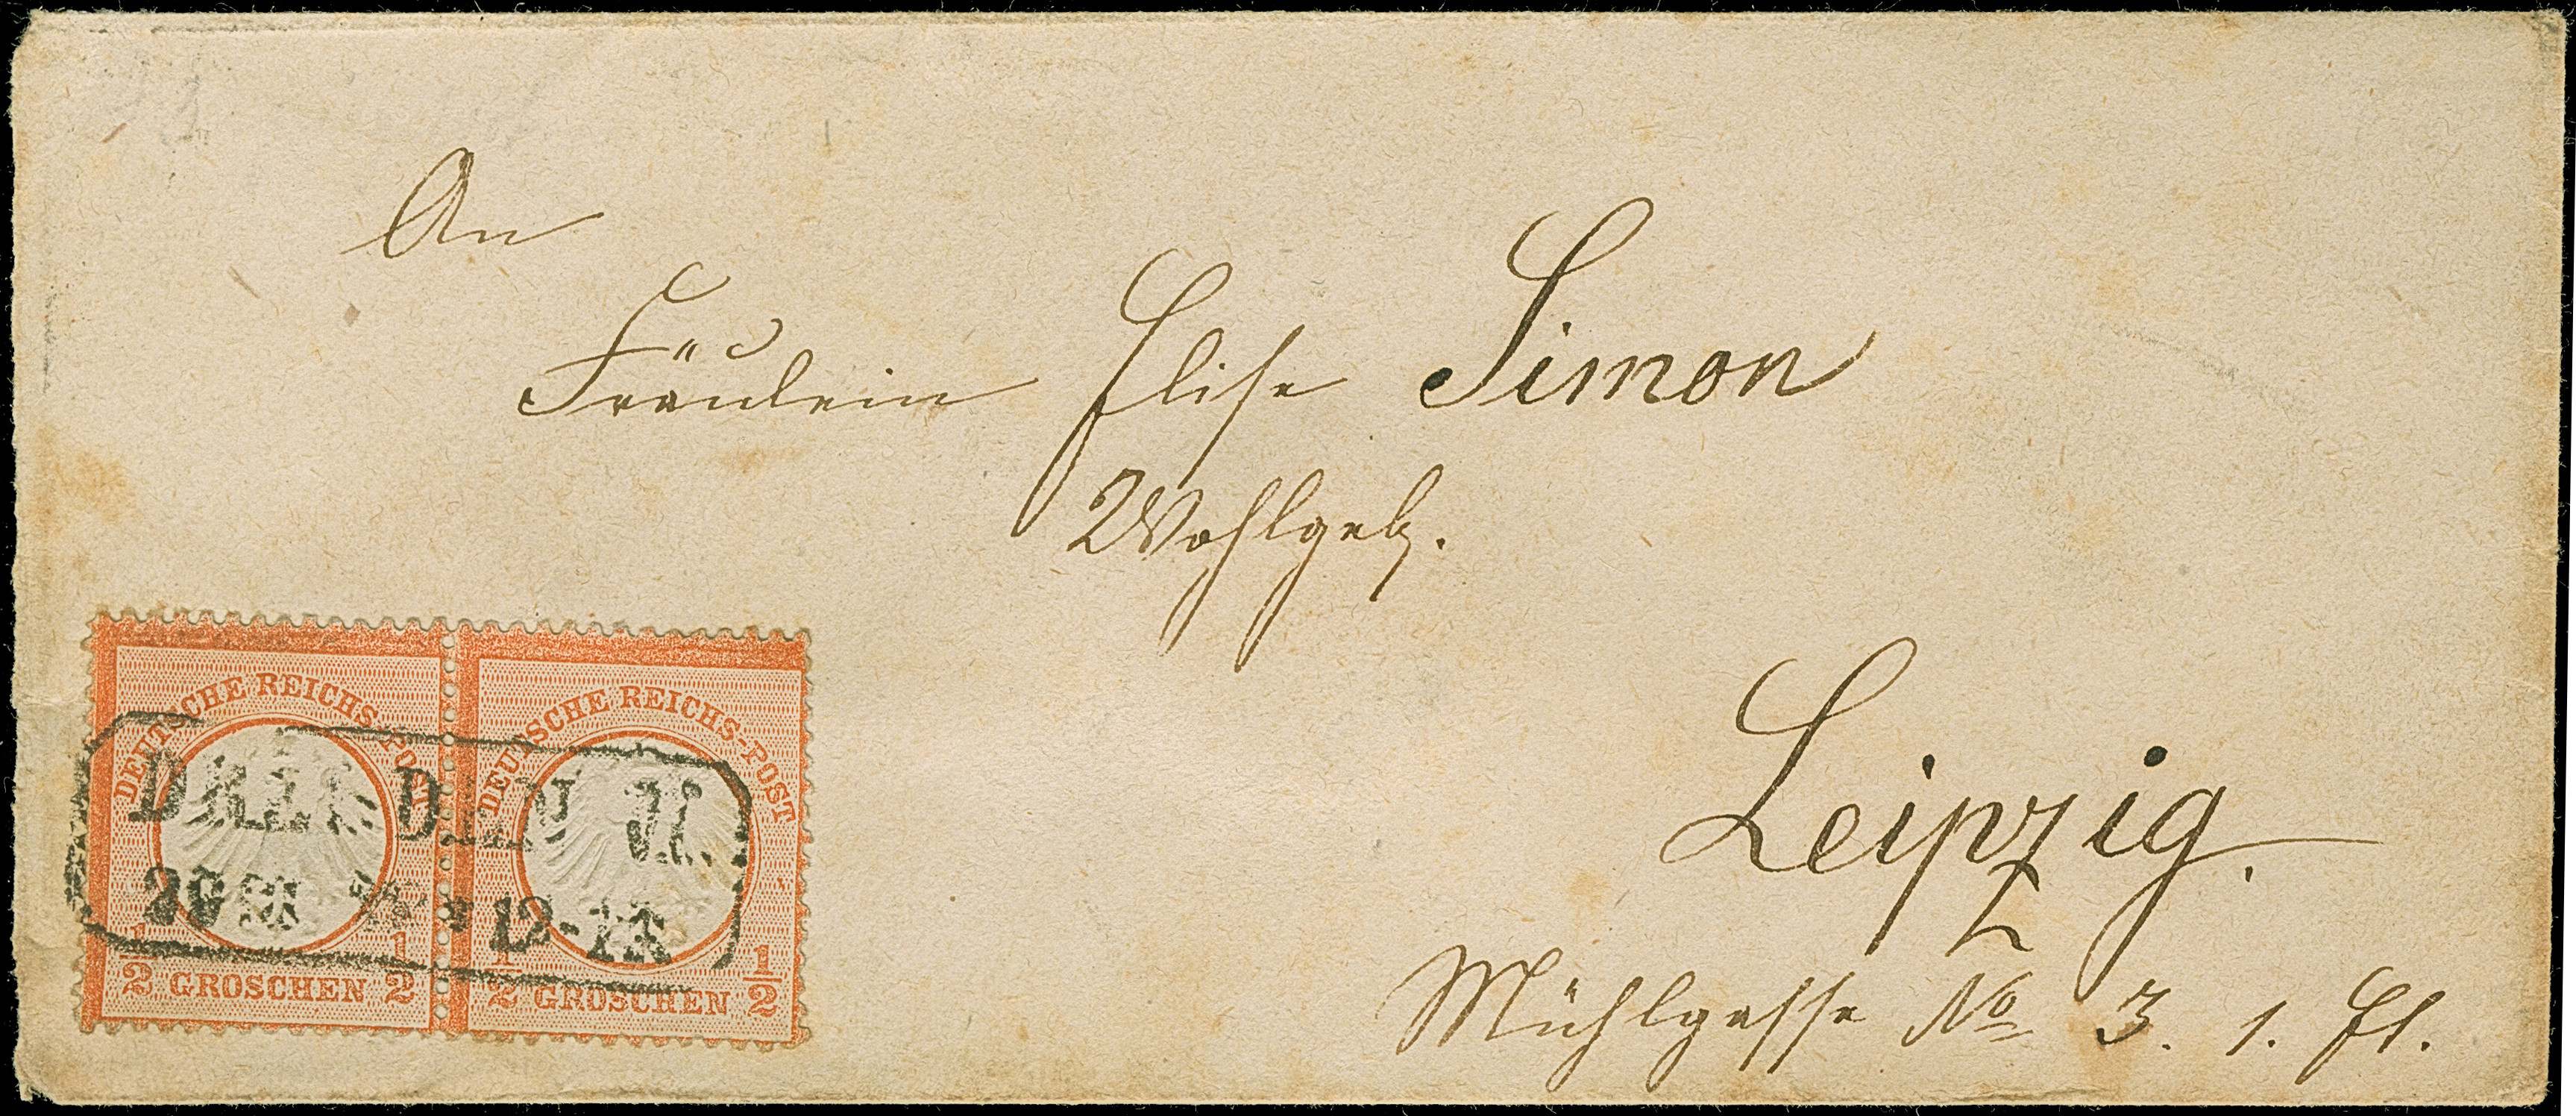 An
Fräulein Elise Simon
Wohlgeb.
Leipzig.
Mühlgasse No 3. 1. Et.
DEUTSCHE REICHS-POST
1/2 GROSCHEN 1/2
DEUTSCHE REICHS-POST
1/2 GROSCHEN 1/2
12-